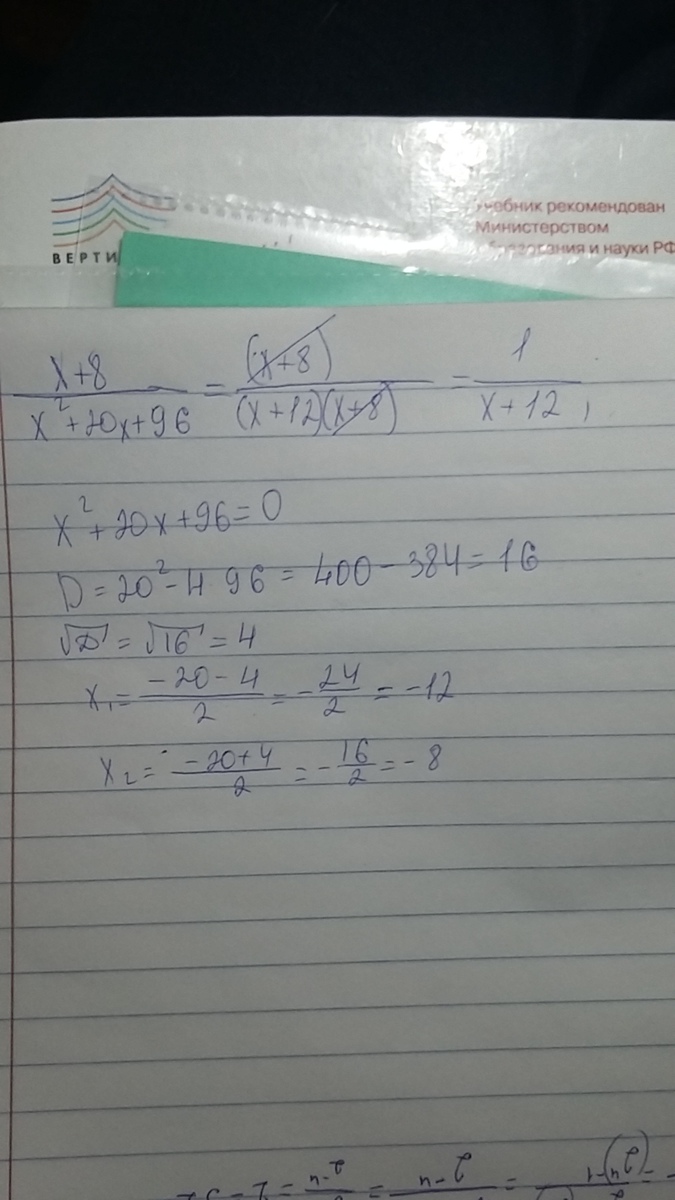 ВЕРТИ
учебник рекомендован
Министерством
образования и науки РФ
x+8 / x²+20x+96 = (x+8) / (x+12)(x+8) = 1 / x+12 ,
x²+20x+96=0
D=20²-4 96=400-384=16
√D=√16=4
x₁= -20-4 / 2 = - 24 / 2 = -12
x₂= -20+4 / 2 = - 16 / 2 = -8